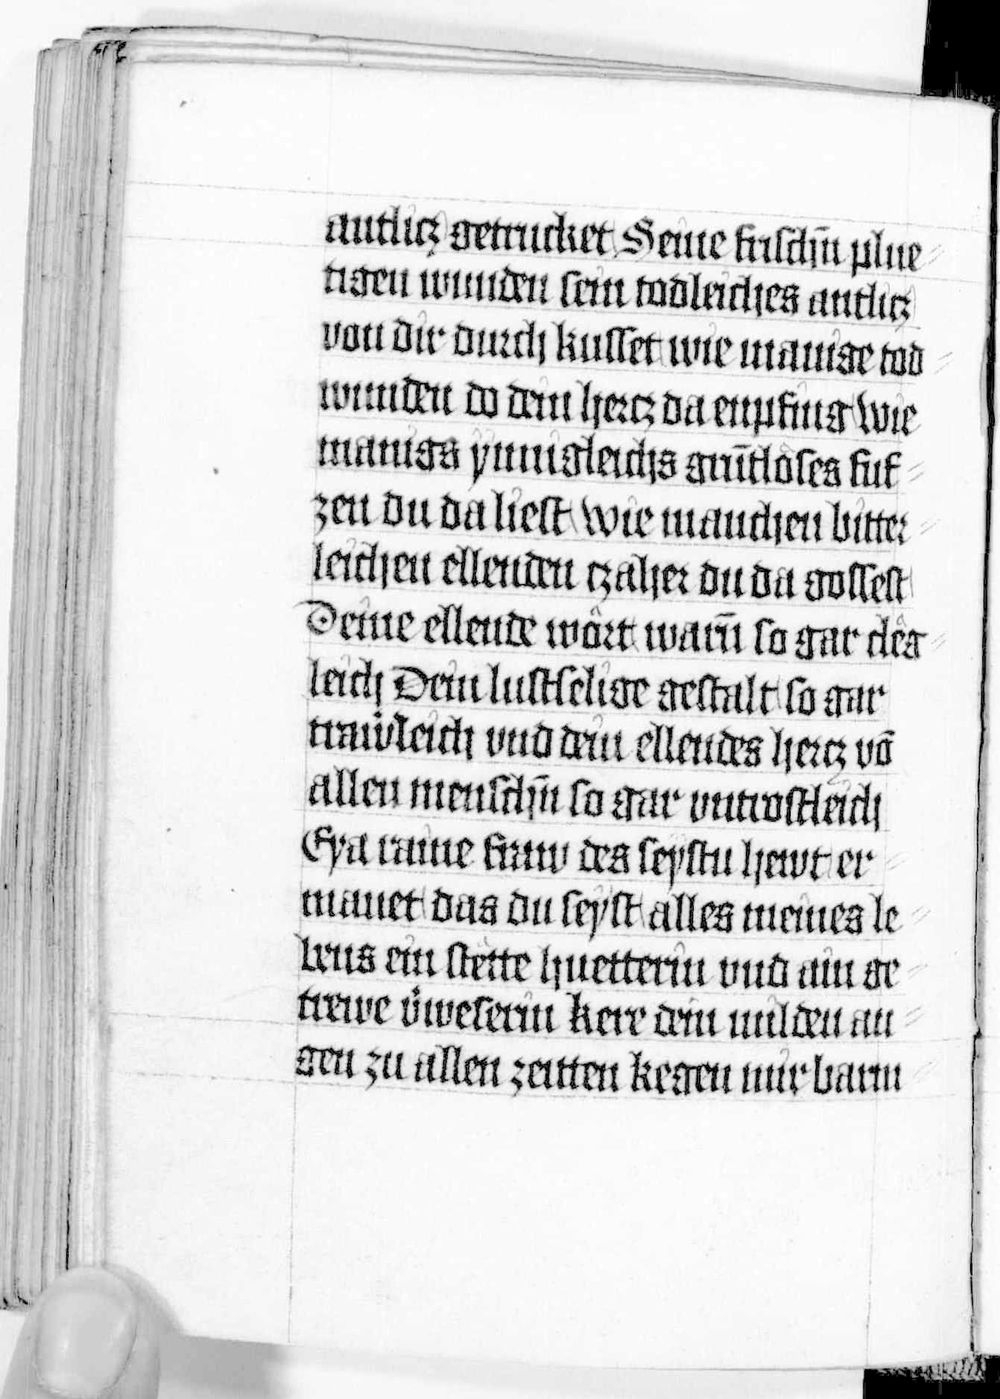 antlicz getrucket Seine frischn̄ plue⸗
tigen wunden sein todleiches antlicz
von dir durch kusset wie manige tod⸗
wunden do dein hercz da enpfing Wie
manigs ynnigleichs grūtloses suf⸗
zen du da liest Wie manchen bitter⸗
leichen ellenden czaher du da gossest
Deine ellende wört warn̄ so gar cleg⸗
leich Dein lustselige gestalt so gar
trawͤleich vnd dein ellendes hercz vō
allen menschn̄ so gar vntrostleich
Eya raine fraw des seystu hewt er⸗
manet das du seyst alles meines le⸗
bens ein stette huetterin vnd ain ge⸗
trewe v̈weserin kere dein milden au⸗
gen zu allen zeitten kegen mir barm⸗